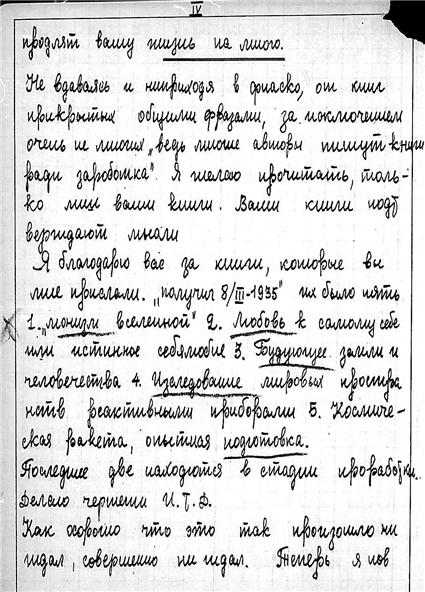 IV
продлят вашу жизнь на много.
Не вдаваясь и неприходя в фиаско, от книг
прикрытых общими фразами, за исключением
очень не многих „ведь многие авторы пишут книги
ради заработка". Я желаю прочитать, толь-
ко лиш ваши книги. Ваши книги подт
верждают мысли
Я благодарю вас за книги, которые вы
мне прислали. „получил 8/III-1935" их было пять
1. „монизм вселенной" 2. Любовь к самому себе
или истинное себялюбие 3. Будующее земли и
человечества 4. Изследование мировых простра
нств реактивными приборами 5. Космиче-
ская ракета, опытная подготовка.
Последние две находются в стадии проработки.
Делаю чертежи И.Т.Д.
Как хорошо что это так произошло ни
ждал, совершенно ни ждал. Теперь я пов